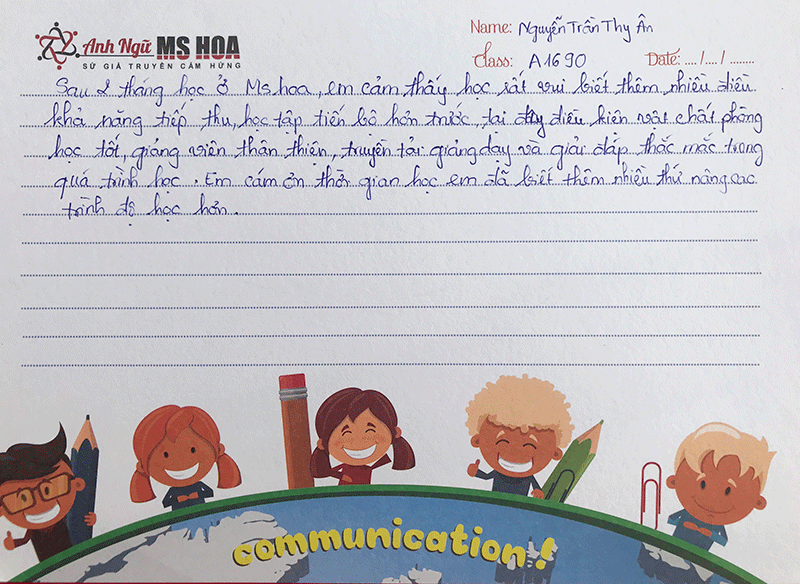 Anh Ngữ MS HOA
SỨ GIẢ TRUYỀN CẢM HỨNG
Name: Nguyễn Trần Thy Ân
Class: A1690 Date: .... /.... / ........
Sau 2 tháng học ở Ms hoa, em cảm thấy học rất vui biết thêm nhiều điều
khả năng tiếp thu, học tập tiến bộ hơn trước, tại đây điều kiện vật chất phòng
học tốt, giảng viên thân thiện, truyền tải giảng dạy và giải đắp thắc mắc trong
quá trình học. Em cám ơn thời gian học em đã biết thêm nhiều thứ nâng cao
trình độ học hơn.
communication!